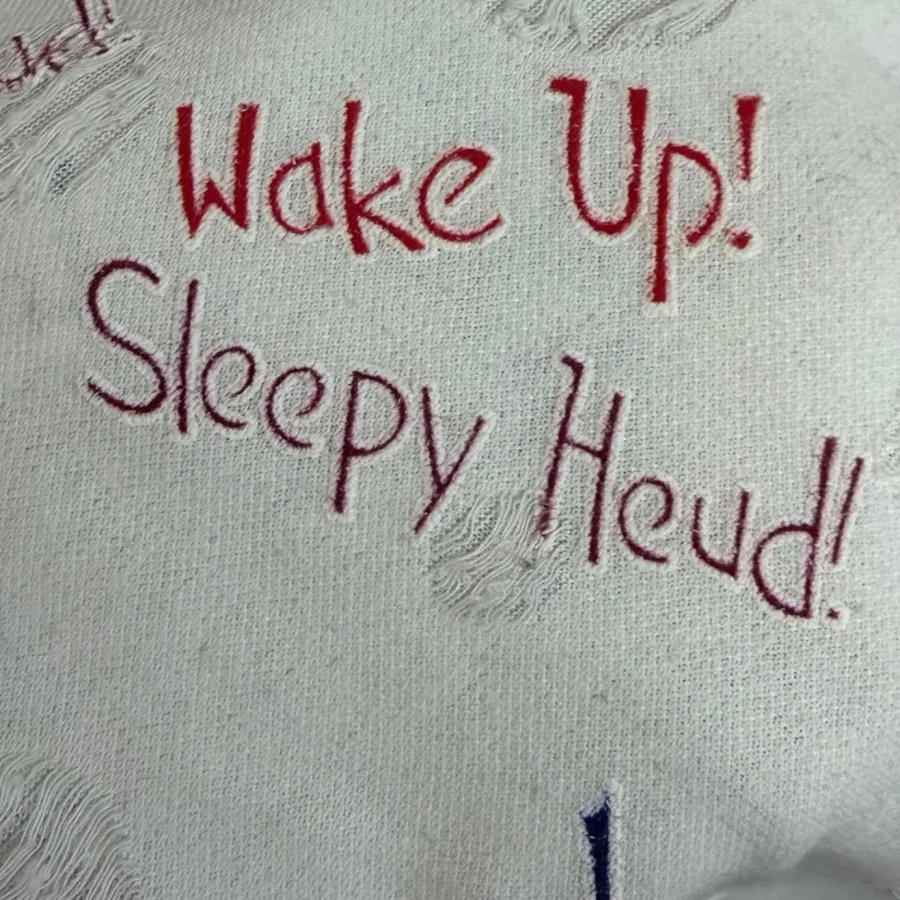 Wake Up!
Sleepy Heud!